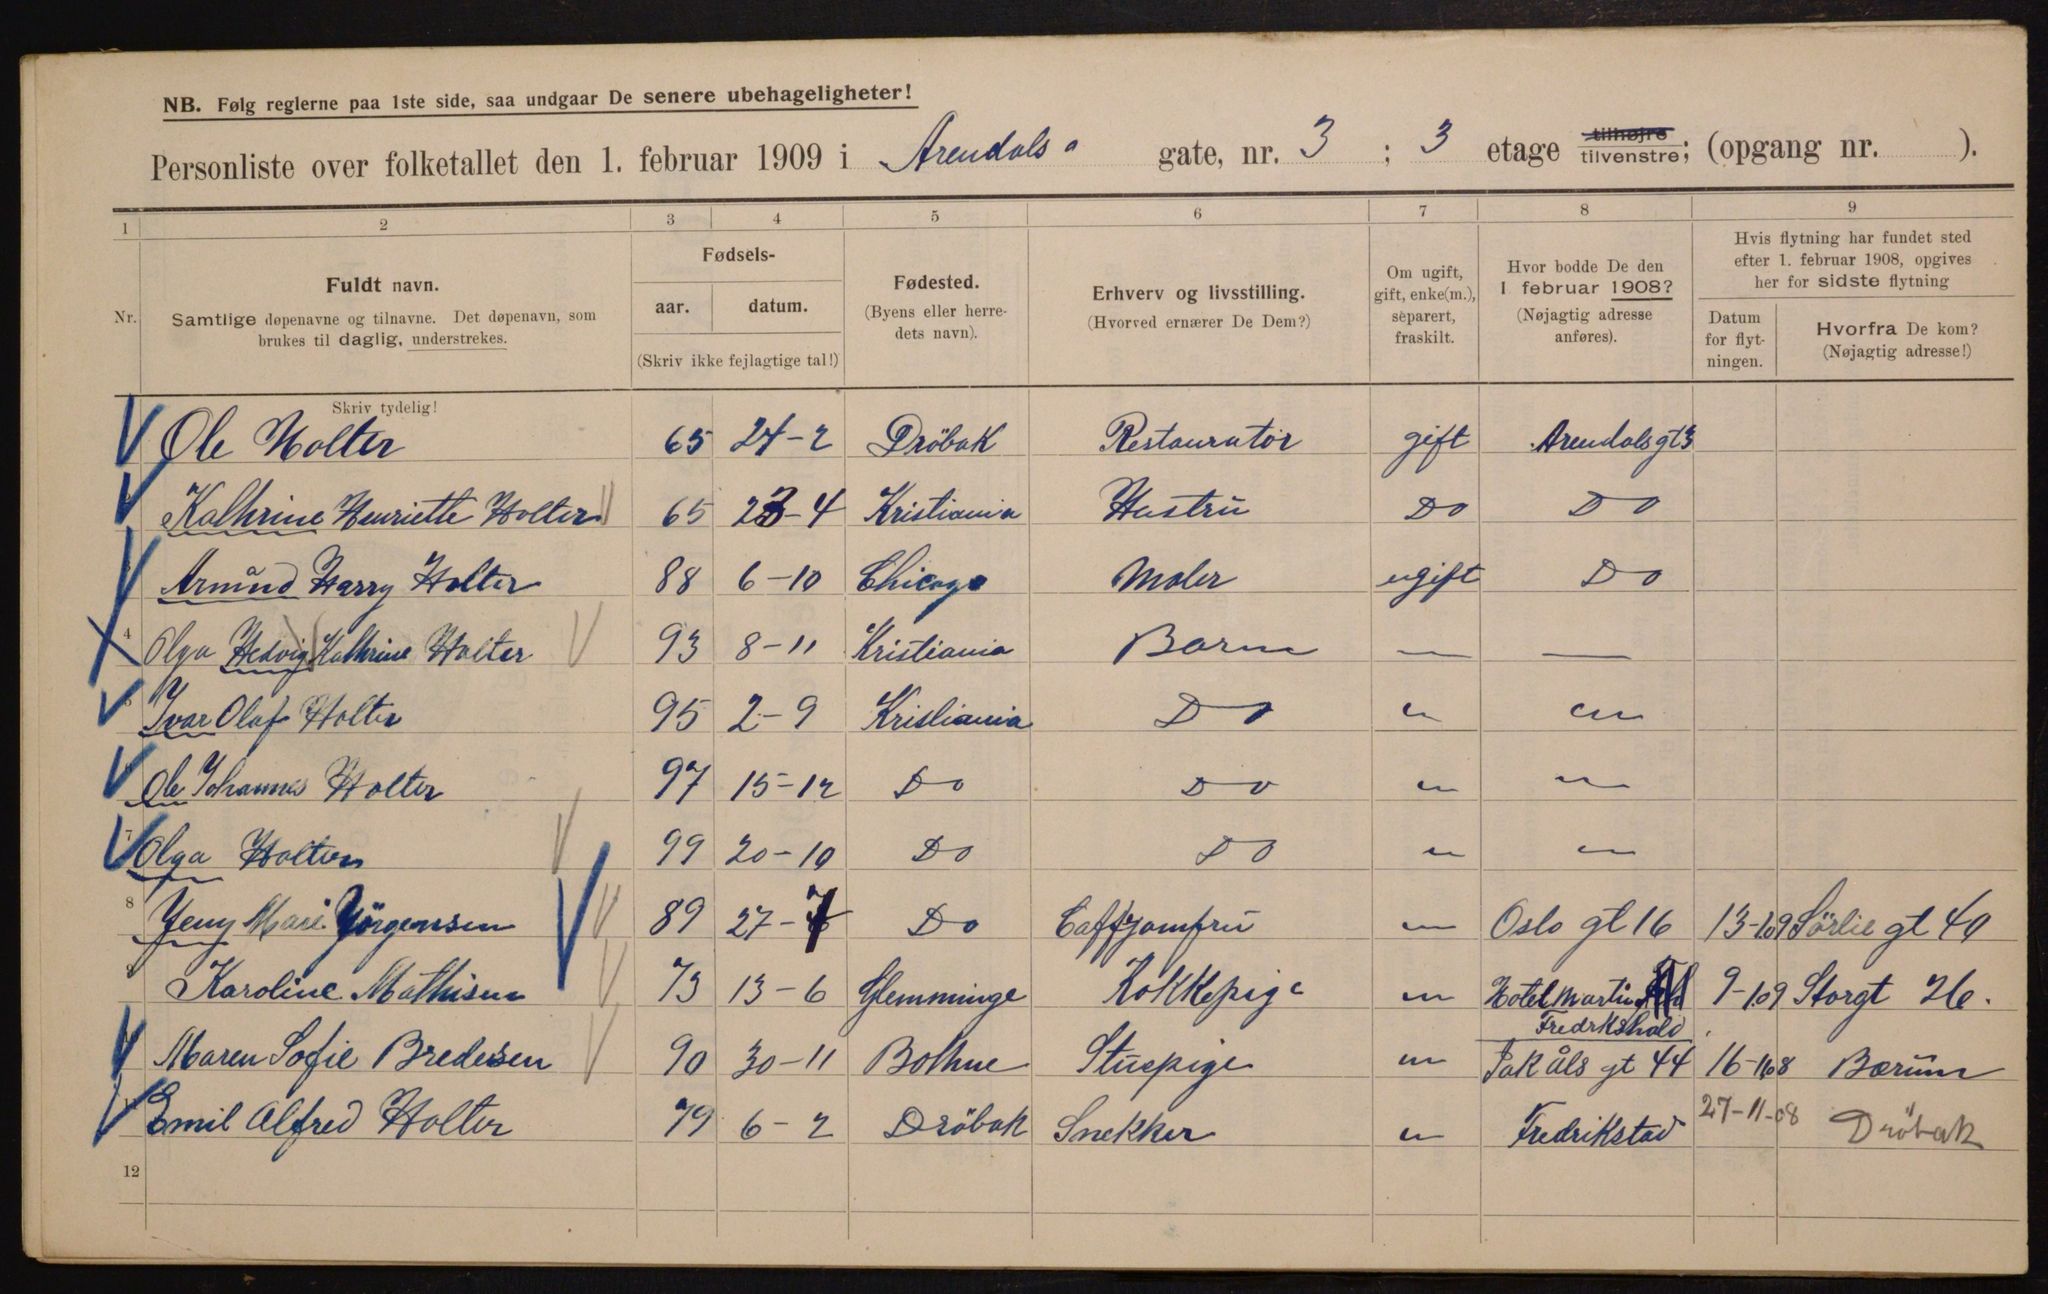 NB. Følg reglerne paa 1ste side, saa undgaar De senere ubehageligheter!
Personliste over folketallet den 1. februar 1909 i Arendals gate, nr. 3 ; 3 etage tilhøjre tilvenstre; (opgang nr. ).
1 2 3 4 5 6 7 8 9
Nr.
Fuldt navn.
Samtlige døpenavne og tilnavne. Det døpenavn, som
brukes til daglig, understrekes.
Skriv tydelig!
Fødsels-
aar. datum.
(Skriv ikke fejlagtige tal!)
Fødested.
(Byens eller herre-
dets navn).
Erhverv og livsstilling.
(Hvorved ernærer De Dem?)
Om ugift,
gift, enke(m.),
separert,
fraskilt.
Hvor bodde De den
1 februar 1908?
(Nøjagtig adresse
anføres).
Hvis flytning har fundet sted
efter 1. februar 1908, opgives
her for sidste flytning
Datum
for flyt-
ningen.
Hvorfra De kom?
(Nøjagtig adresse!)
Ole Holter 65 24-2 Dröbak Restauratör gift Arendalsgt 3
Kathrine Henriette Holter 65 23-4 Kristiania Hustru Do Do
Armund Harry Holter 88 6-10 Chicago Maler ugift Do
4 Olga Hedvig Kathrine Holter 93 8-11 Kristiania Barn — —
Ivar Olaf Holter 95 2-9 Kristiania Do " "
Ole Johannes Holter 97 15-12 Do Do " "
7 Olga Holter 99 20-10 Do Do " "
8 Jeny Marie Jörgensen 89 27-7 Do Caffejomfru " Oslo gt 16 13-1.09 Sörlie gt 40
Karoline Mathisen 73 13-6 Glemminge Kokkepige " Hotel Martin 9-1.09 Storgt 26.
Fredrkshald
Maren Sofie Bredesen 90 30-11 Bothne Stuepige " Jak Åls gt 44 16-11.08 Bærum
Emil Alfred Holter 79 6-2 Dröbak Snekker " Fredrikstad 27-11-08 Dröbak
12